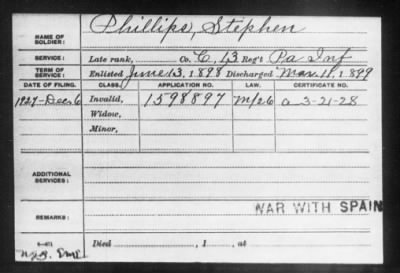 NAME OF SOLDIER: Phillips, Stephen
SERVICE: Late rank, Co. C, 13 Reg't Pa Inf
TERM OF SERVICE: Enlisted June 13, 1898 Discharged Mar. 11, 1899
DATE OF FILING. CLASS. APPLICATION NO. LAW. CERTIFICATE NO.
1927-Dec 6 Invalid, 1598897 M/26 a 3-21-28
Widow,
Minor,
ADDITIONAL SERVICES:
WAR WITH SPAIN
REMARKS:
Died , 1 , at